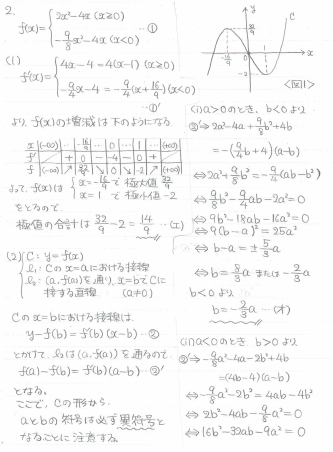 2.
f(x)= { 2x²-4x (x≥0)
-9/8x²-4x (x<0) …①
(1)
f'(x)= { 4x-4=4(x-1) (x≥0)
-9/4x-4=-9/4(x+16/9)(x<0)
…①'
より、f(x)の増減は下のようになる
x (-∞) … -16/9 … 0 … 1 … (+∞)
f' + 0 - -4 - 0 +
f (-∞) ↗ 32/9 ↘ 0 ↘ -2 ↗ (+∞)
よって、f(x)は { x=-16/9で極大値32/9
x=1で極小値-2
をとるので、
極値の合計は 32/9-2=14/9 …(エ)
(2) { C: y=f(x)
l₁: Cのx=aにおける接線
l₂: (a,f(a))を通り、x=bでCに
接する直線 (a≠0)
Cのx=bにおける接線は
y-f(b)=f'(b)(x-b) …②
とかけて、l₂は(a,f(a))を通るので
f(a)-f(b)=f'(b)(a-b) …②'
となる。
ここで、Cの形から、
aとbの符号は必ず異符号と
なることに注意する。
y
C
32/9
-16/9
1
-2
x
<図1>
(i)a>0のとき、b<0より
②'⇔2a²-4a+9/8b²+4b
=-(9/4b+4)(a-b)
⇔2a²+9/8b²=-9/4(ab-b²)
⇔9/8b²-9/4ab-2a²=0
⇔9b²-18ab-16a²=0
⇔9(b-a)²=25a²
⇔b-a=±5/3a
⇔b=8/3a または -2/3a
b<0より
b=-2/3a …(オ)
(ii)a<0のとき、b>0より
②'⇔-9/8a²-4a-2b²+4b
=(4b-4)(a-b)
⇔-9/8a²-2b²=4ab-4b²
⇔2b²-4ab-9/8a²=0
⇔16b²-32ab-9a²=0